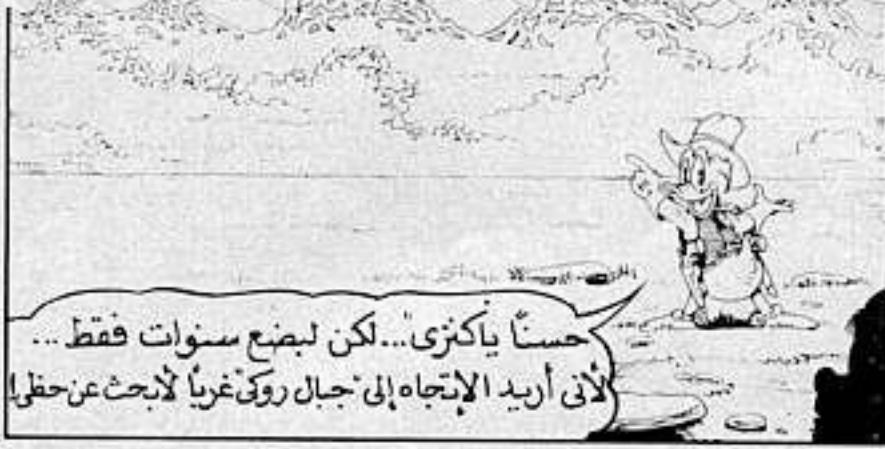 حسنًا ياكنزى"...لكن لبضع سنوات فقط...
لأنى أريد الإتجاه إلى "جبال روكى" غربًا لأبحث عن حظى!